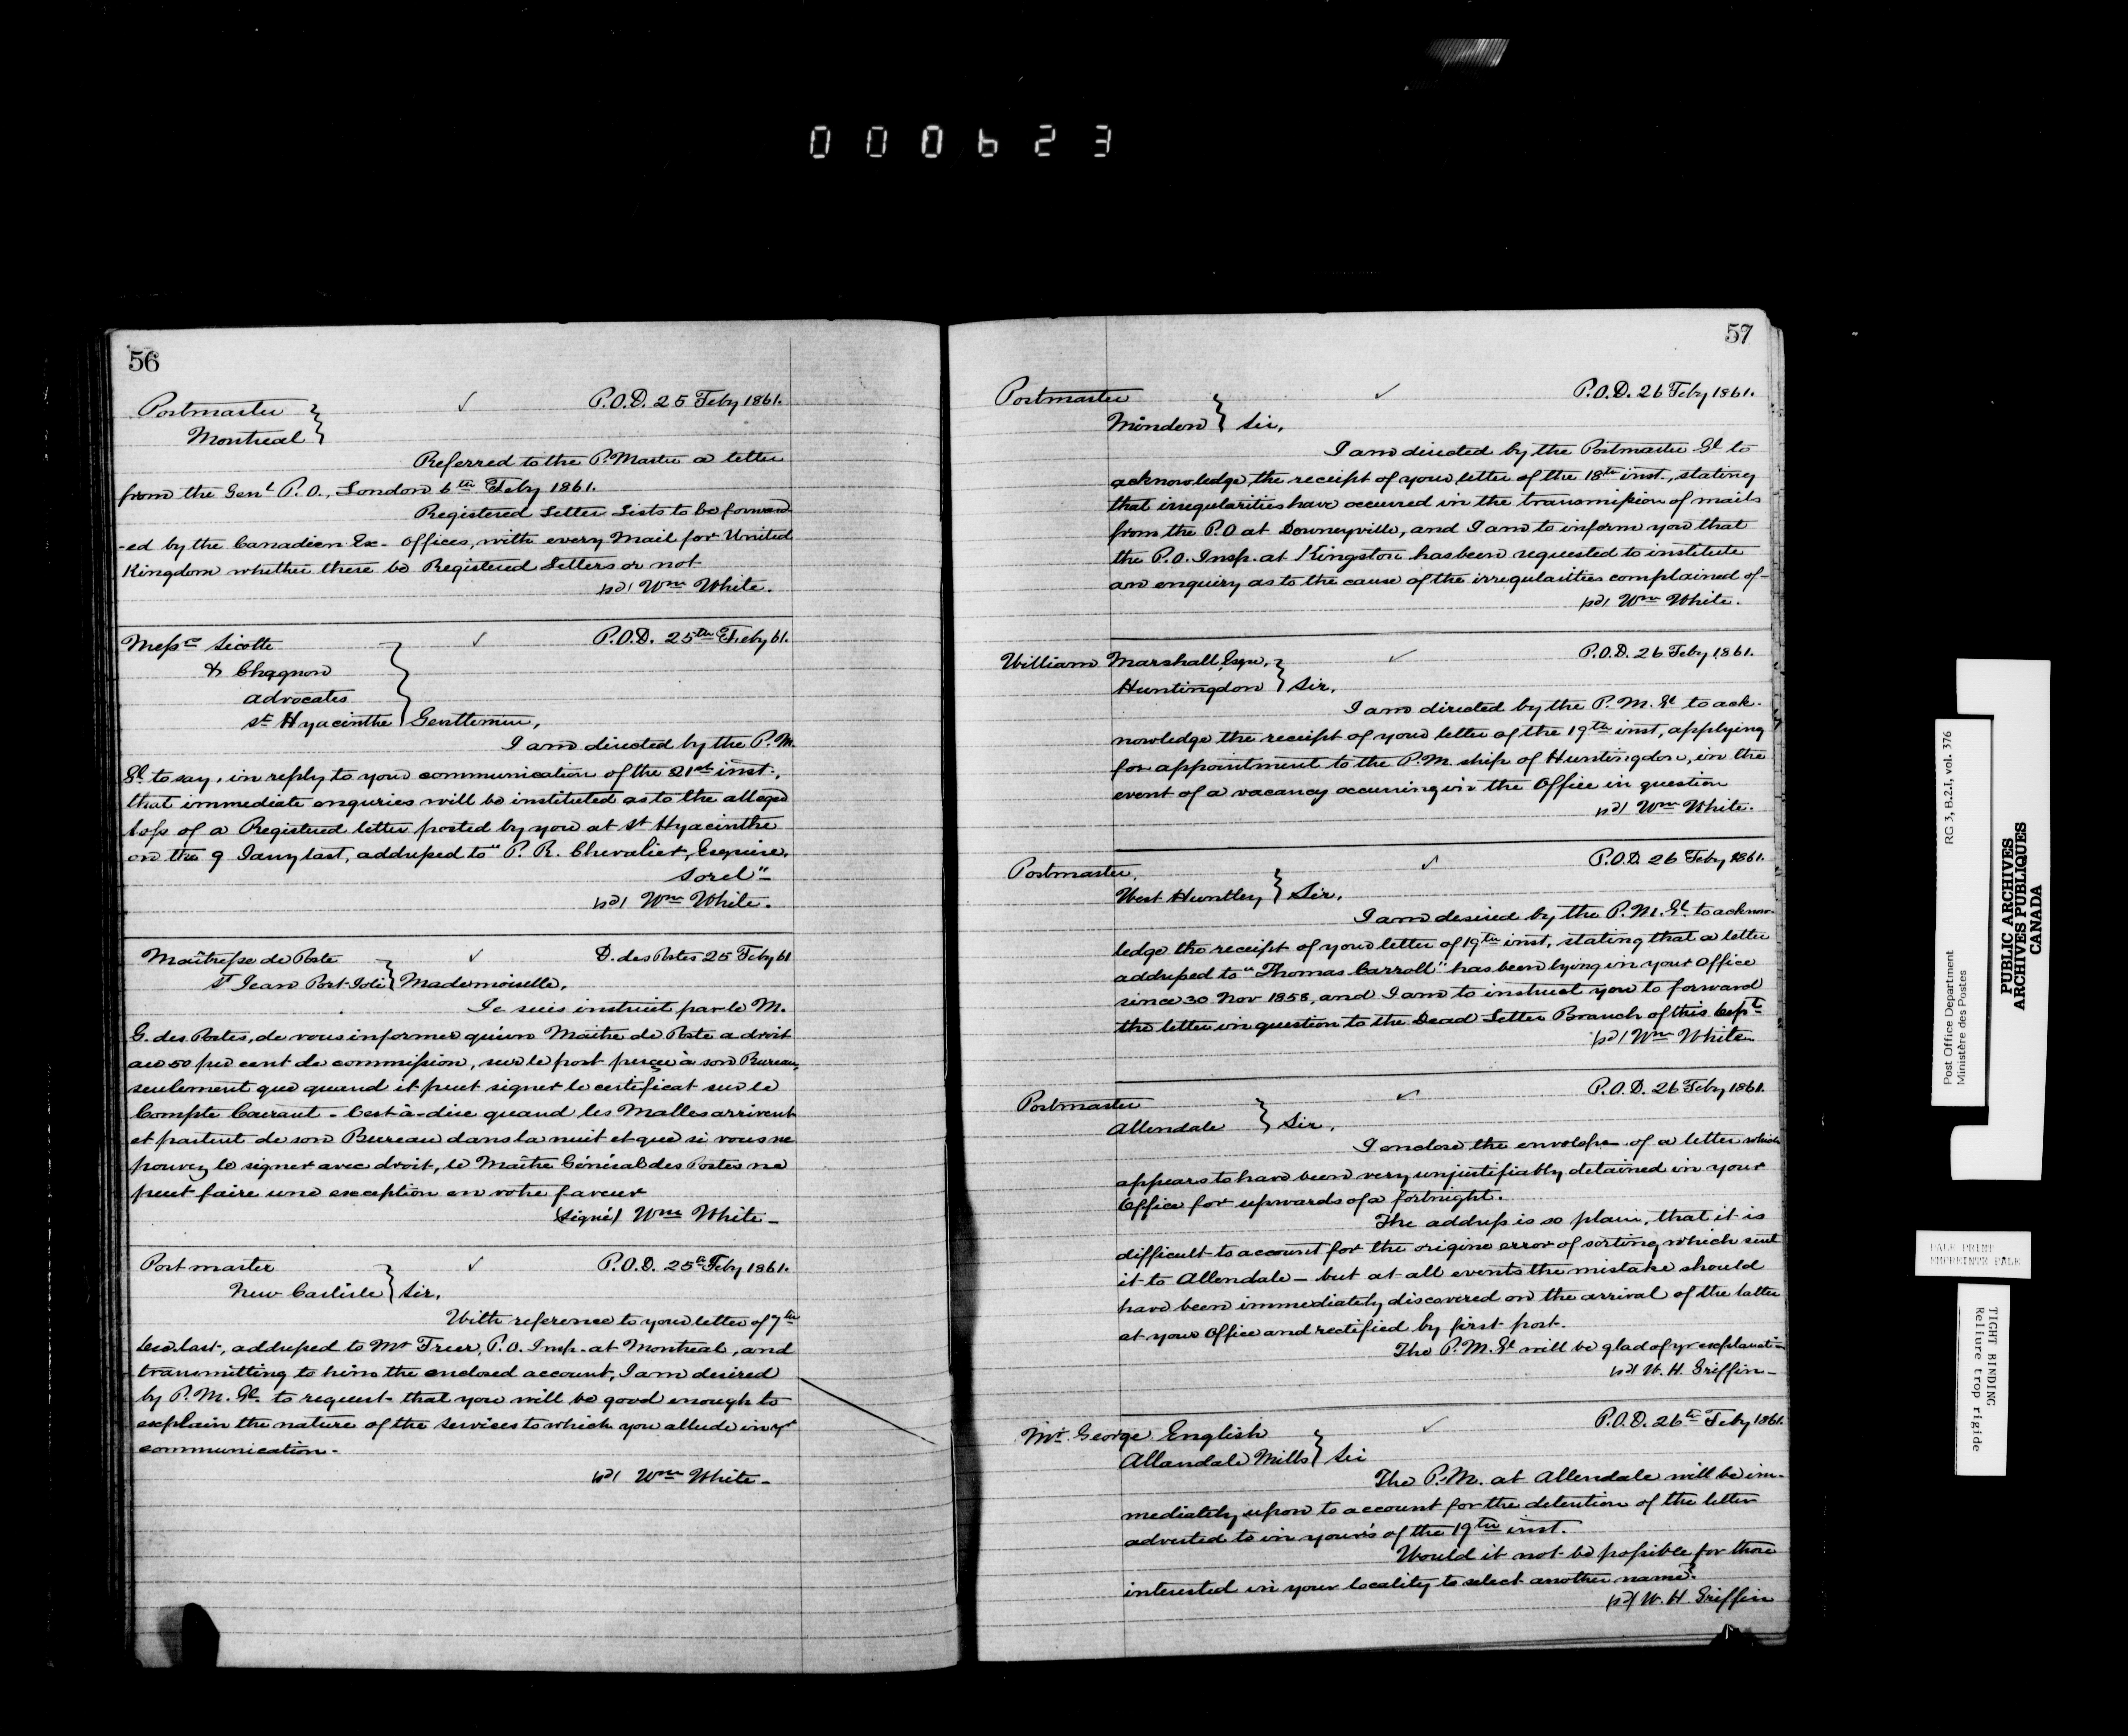 000623
56
Postmaster
Montreal
P.O.D. 25 Feby 1861.
Referred to the P. Master a letter
from the Genl P.O., London 6th Feby 1861.
Registered Letter Lists to be forward
-ed by the Canadian Ex- Offices, with every Mail for United
Kingdom whether there be Registered Letters or not
sd/ Wm White.
Messrs Sicotte
& Chagnon
Advocates
St Hyacinthe
P.O.D. 25th Feby 61.
Gentlemen,
I am directed by the P.M.
Gl. to say, in reply to your communication of the 21st inst.,
that immediate enquries will be instituted as to the alleged
loss of a Registered letter posted by you at St Hyacinthe
on the 9 Jany last, addressed to "P. R. Chevalier, Esquire,
Sorel"
sd/ Wm White.
Maîtresse de Poste
St Jean Port-Joli
D. des Postes 25 Feby 61
Mademoiselle,
Je suis instruit par le M.
G. des Postes, de vous informer qu'un Maitre de Poste a droit
au 50 per cent de commission, sur le port perçue à son Bureau,
seulement que quand it peut signer le certificat sur le
Compte Courant - C'est-à-dire quand les Malles arrivent
et partent de son Bureau dans la nuit et que si vous ne
pouvez le signer avec droit, le Maître Général des Postes ne
peut faire une exception en votre faveur
(Signé) Wm White -
Post master
New Carlisle
P.O.D. 25th Feby 1861.
Sir,
With reference to your letter of 7th
Dec last, addressed to Mr Freer, P.O. Insp. at Montreal, and
transmitting to him the enclosed account, I am desired
by P.M. Gl. to request that you will be good enough to
explain the nature of the services to which you allude in yr
communication.
sd/ Wm White -
57
Postmaster
Minden
P.O.D. 26 Feby 1861.
Sir,
I am directed by the Postmaster Gl to
acknowledge the receipt of your letter of the 18th inst., stating
that irregularities have occurred in the transmission of mails
from the P.O at Downeyville, and I am to inform you that
the P.O. Insp. at Kingston has been requested to institute
an enquiry as to the cause of the irregularities complained of -
sd/ Wm White.
William Marshall, Esqre,
Huntingdon
P.O.D. 26 Feby 1861.
Sir,
I am directed by the P.M. Gl to ack-
nowledge the receipt of your letter of the 19th inst, applying
for appointment to the P.M. ship of Huntingdon, in the
event of a vacancy occurring in the Office in question
sd/ Wm White.
Postmaster,
West Huntley
P.O.D. 26 Feby 1861.
Sir,
I am desired by the P.M. Gl. to acknow-
ledge the receipt of your letter of 19th inst, stating that a letter
addressed to "Thomas Carroll" has been lying in your Office
since 30 Nov 1858, and I am to instruct you to forward
the letter in question to the Dead Letter Branch of this Dept
sd/ Wm White
Postmaster
Allendale
P.O.D. 26 Feby 1861.
Sir,
I enclose the envelope of a letter which
appears to have been very unjustifiably detained in your
Office for upwards of a fortnight.
The address is so plain, that it is
difficult to account for the origine error of sorting which sent
it to Allendale - but at all events the mistake should
have been immediately discovered on the arrival of the latter
at your Office and rectified by first post.
The P.M. Gl will be glad of yr explanation
sd/ W. H. Griffin -
Mr. George English
Allandale Mills
P.O.D. 26th Feby 1861.
Sir
The P.M. at Allendale will be im-
mediately upon to account for the detention of the letter
adverted to in your's of the 19th inst.
Would it not be possible for those
interested in your locality to select another name?
sd/ W. H. Griffin
Post Office Department
Ministère des Postes
RG 3, B.2.I, vol. 376
PUBLIC ARCHIVES
ARCHIVES PUBLIQUES
CANADA
PALE PRINT
EMPREINTE PALE
TIGHT BINDING
Reliure trop rigide